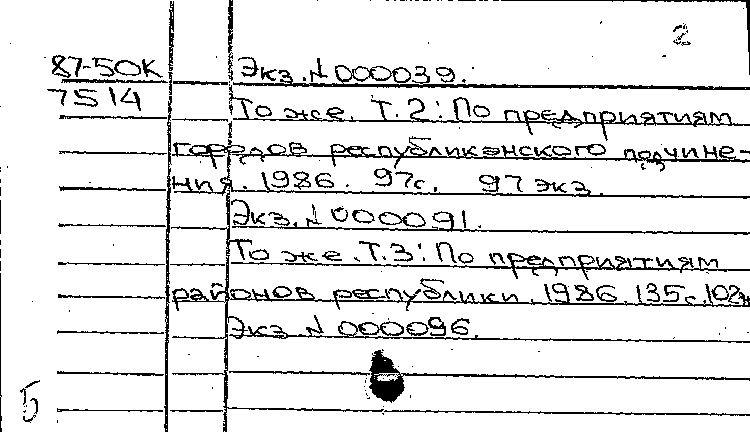 2
87-50К Экз. N 000039.
7514 То же. Т.2: По предприятиям
городов республиканского подчине-
ния. 1986. 97с. 97 экз.
Экз. N 000091.
То же. Т.3: По предприятиям
районов республики. 1986. 135с. 102э
Экз. N 000096.
Б